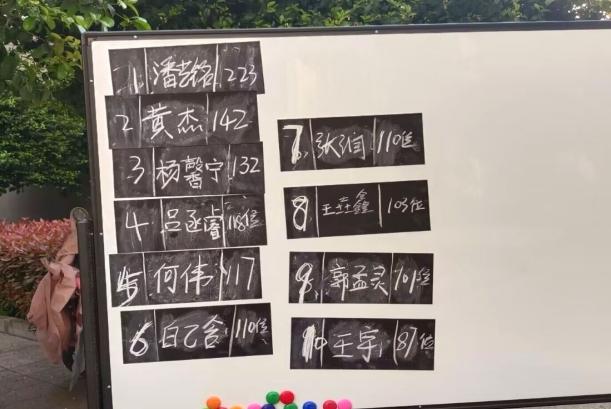 1 潘艺铭 223
2 黄杰 142
3 杨馨宁 132
4 吕丞睿 118位
5 何伟 117
6 白乙含 110位
7 张洵 110位
8 王垚鑫 103位
9 郭孟灵 101位
10 王宇 87位